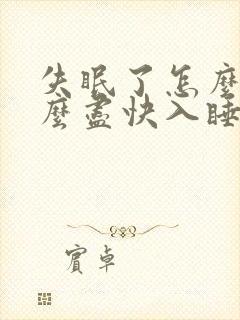 失眠了怎麼
麼盡快入睡
賓卓